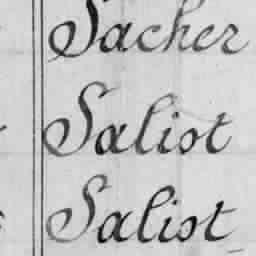 Sacher
Salist
Salist